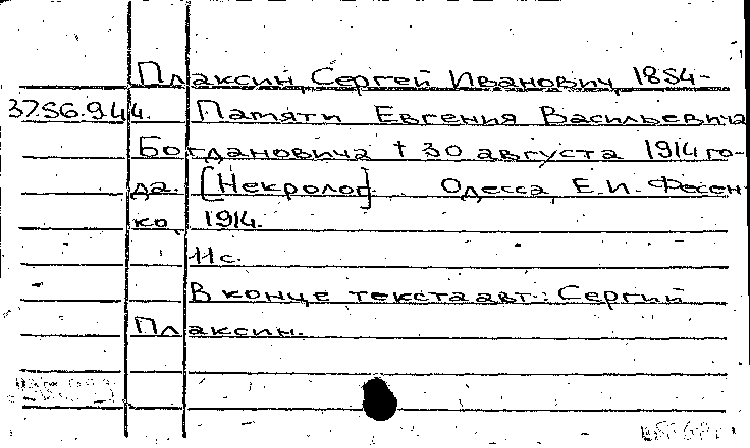 Плаксин, Сергей Иванович, 1854-
3756.944. Памяти Евгения Васильевича
Богдановича † 30 августа 1914 го-
да. [Некролог]. Одесса, Е.И. Фесен-
ко, 1914.
11с.
В конце текста авт.: Сергий
Плаксин.